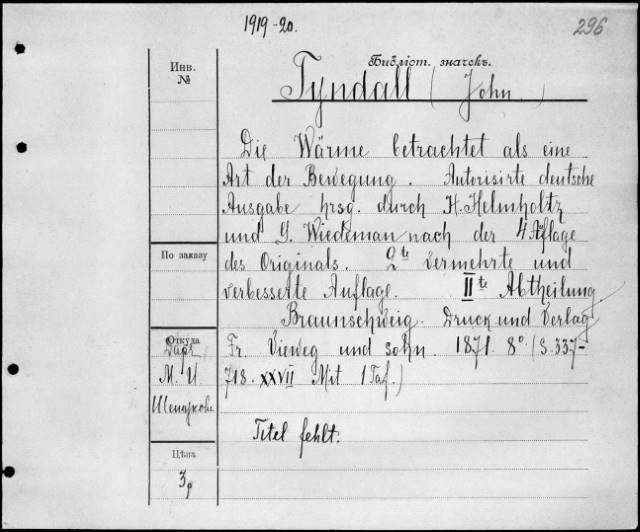 1919-20.
296
Инв.
№
Библіот. значекъ.
Tyndall (John.)
Die Wärme betrachtet als eine
Art der Bewegung. Autorisirte deutsche
Ausgabe hrsg. durch H. Helmholtz
und G. Wiedeman nach der 4 Aflage
По заказу
des Originals. 2te vermehrte und
verbesserte Auflage. IIte Abtheilung
Braunschweig. Druck und Verlag
Откуда
Даръ
Fr. Vieweg und sohn. 1871. 8° (S. 337-
М. И.
718. XXVII Mit 1 Taf.)
Titel fehlt.
Цѣна
3р